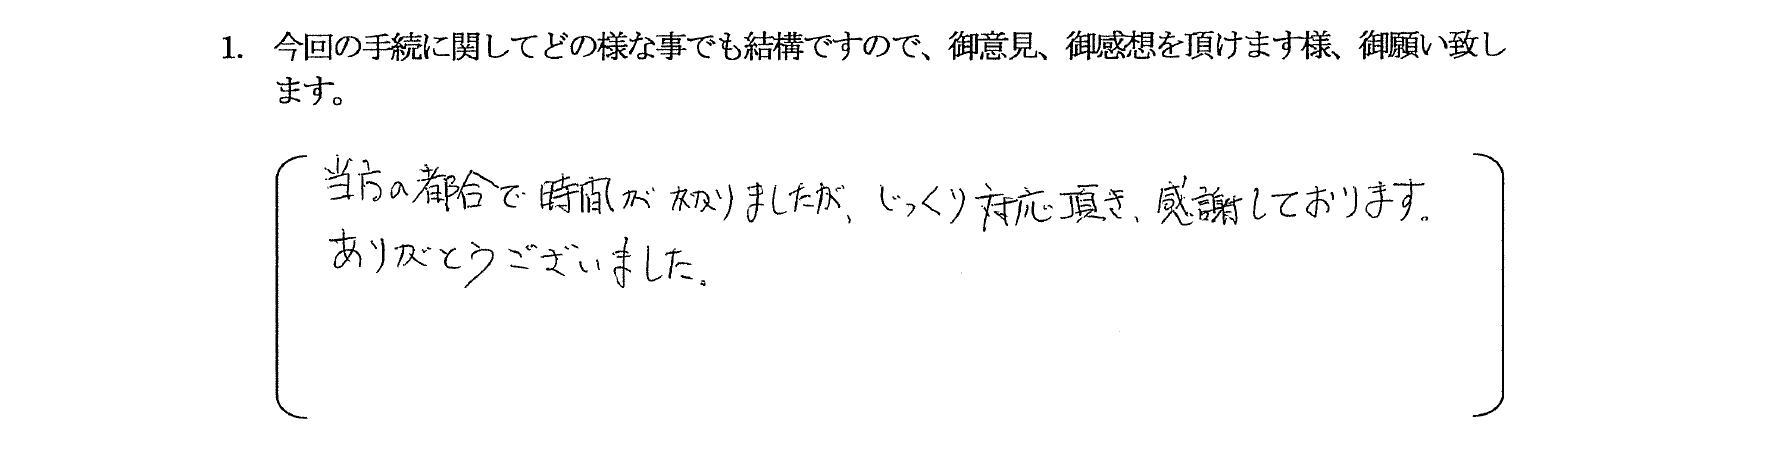 1. 今回の手続に関してどの様な事でも結構ですので、御意見、御感想を頂けます様、御願い致し
ます。
当方の都合で時間が掛りましたが、じっくり対応頂き、感謝しております。
ありがとうございました。